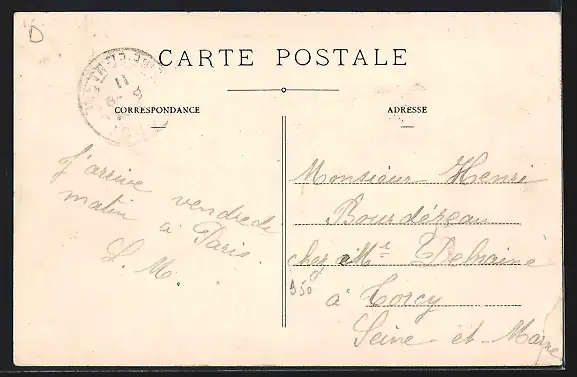 D
CARTE POSTALE
CORRESPONDANCE
ADRESSE
J'arrive vendredi
matin à Paris.
L. M.
Monsieur Henri
Bourdézeau
chez Mr Delsaine
à Torcy
Seine et Marne
950